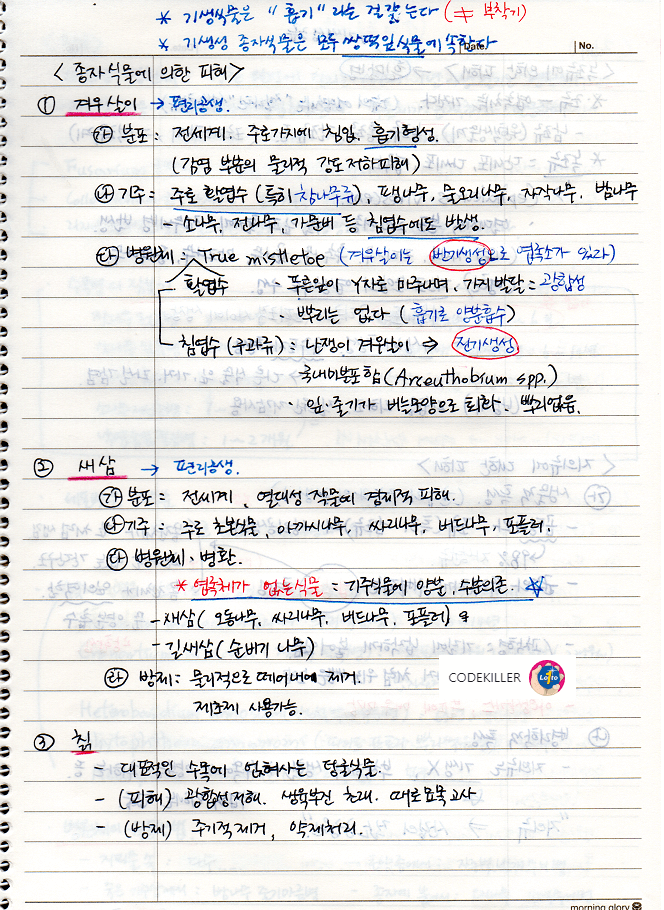 * 기생식물은 "흡기" 라는 걸 갖는다 (≠ 부착기)
* 기생성 종자식물은 모두 쌍떡잎식물에 속한다.
Date. No.
< 종자식물에 의한 피해 >
① 겨우살이 → 편리공생.
㉮ 분포 : 전세계. 주로가지에 침입. 흡기형성.
(감염 부분의 물리적 강도저하피해)
㉯ 기주 : 주로 활엽수 (특히 참나무류), 팽나무, 물오리나무, 자작나무, 밤나무
- 소나무, 전나무, 가문비 등 침엽수에도 발생.
㉰ 병원체 : True mistletoe (겨우살이는 반기생성으로 엽록소가 있다)
활엽수 - 푸른잎이 Y자로 마주나며, 가지발달 = 광합성
뿌리는 없다 (흡기로 양분흡수)
침엽수 (구과류) : 난쟁이 겨우살이 ⇒ 전기생성
국내미분포함 (Arceuthobium spp.)
· 잎·줄기가 비늘모양으로 퇴화. 뿌리없음.
② 새삼 → 편리공생.
㉮ 분포 : 전세계, 열대성 작물에 경제적 피해.
㉯ 기주 : 주로 초본식물, 아까시나무, 싸리나무, 버드나무, 포플러.
㉰ 병원체·병환.
* 엽록체가 없는식물 = 기주식물에 양분, 수분의존.
- 새삼 ( 오동나무, 싸리나무, 버드나무, 포플러)
- 길새삼 ( 순비기 나무)
㉱ 방제 : 물리적으로 떼어내어 제거.
제초제 사용가능.
CODEKILLER
Lotto
③ 칡
- 대표적인 수목에 얹혀사는 덩굴식물.
- (피해) 광합성저해. 생육부진 초래. 때로묘목고사
- (방제) 주기적제거, 약제처리.
morning glory